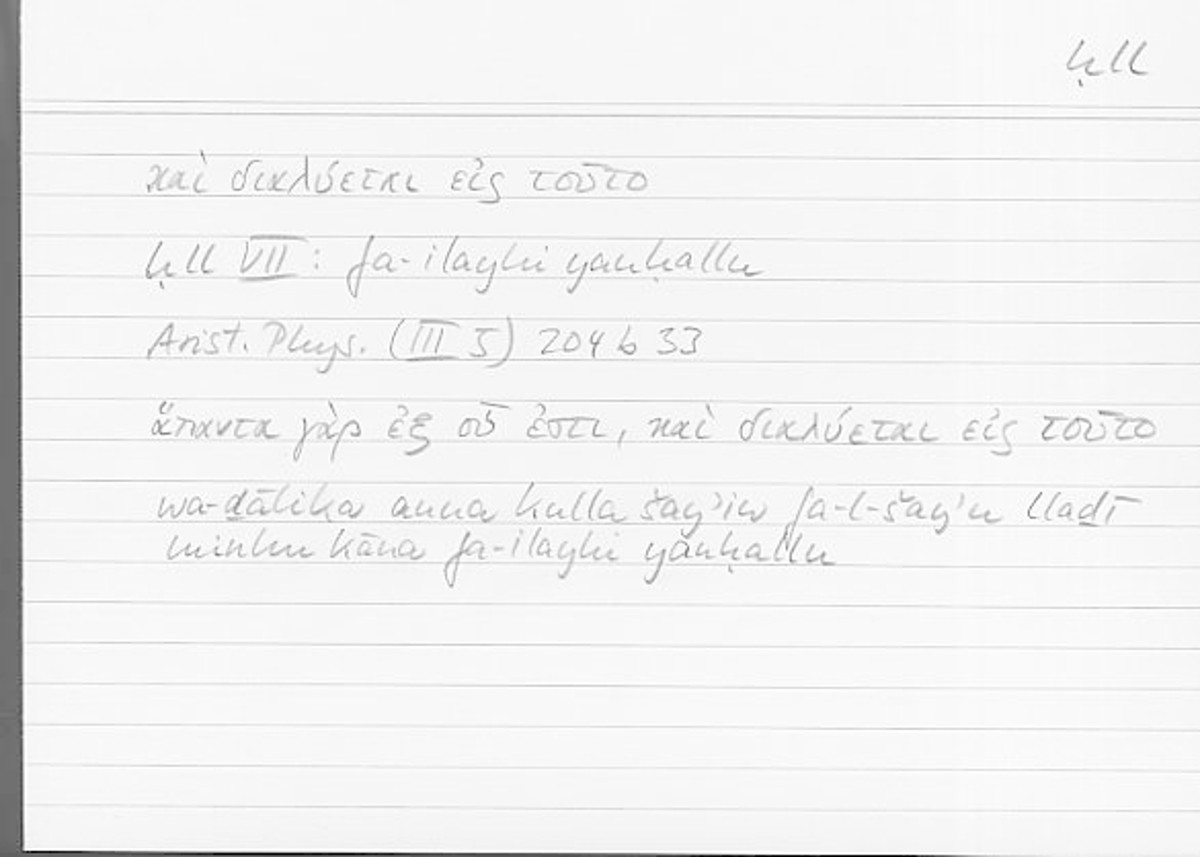 ḥll
καὶ διαλύεται εἰς τοῦτο
ḥll VII : fa-ilayhi yanḥallu
Arist. Phys. (III 5) 204 b 33
ἅπαντα γὰρ ἐξ οὗ ἐστι, καὶ διαλύεται εἰς τοῦτο
wa-ḏālika anna kulla šayʾin fa-l-šayʾu llaḏī
minhu kāna fa-ilayhi yanḥallu